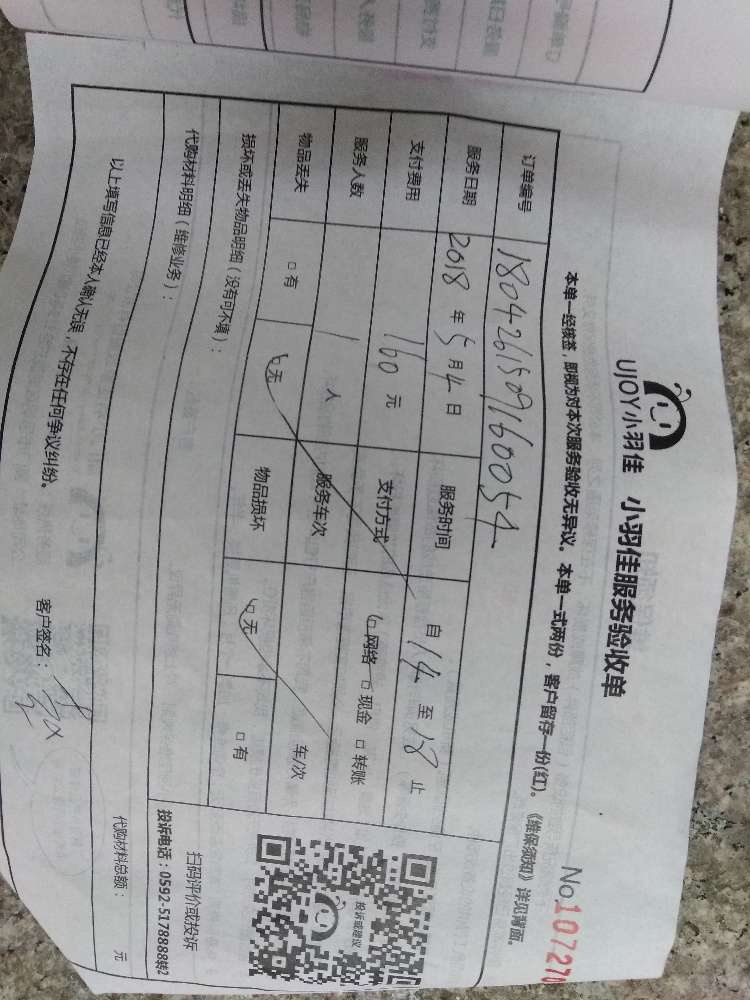 UJOY小羽佳 小羽佳服务验收单
No.107270
本单一经核签，即视为对本次服务验收无异议。本单一式两份，客户留存一份(红)。《维保须知》详见背面。
订单编号 18042615097160054
服务日期 2018年5月4日 服务时间 自14至18止
支付费用 160元 支付方式 □网络 □现金 □转账
服务人数 1人 服务车次 车/次
物品丢失 □有 □无 物品损坏 □无 □有
损坏或丢失物品明细（没有可不填）：
代购材料明细（维修业务）：
代购材料总额： 元
以上填写信息已经本人确认无误，不存在任何争议纠纷。
客户签名：
投诉或建议
扫码评价或投诉
投诉电话：0592-5178888转2